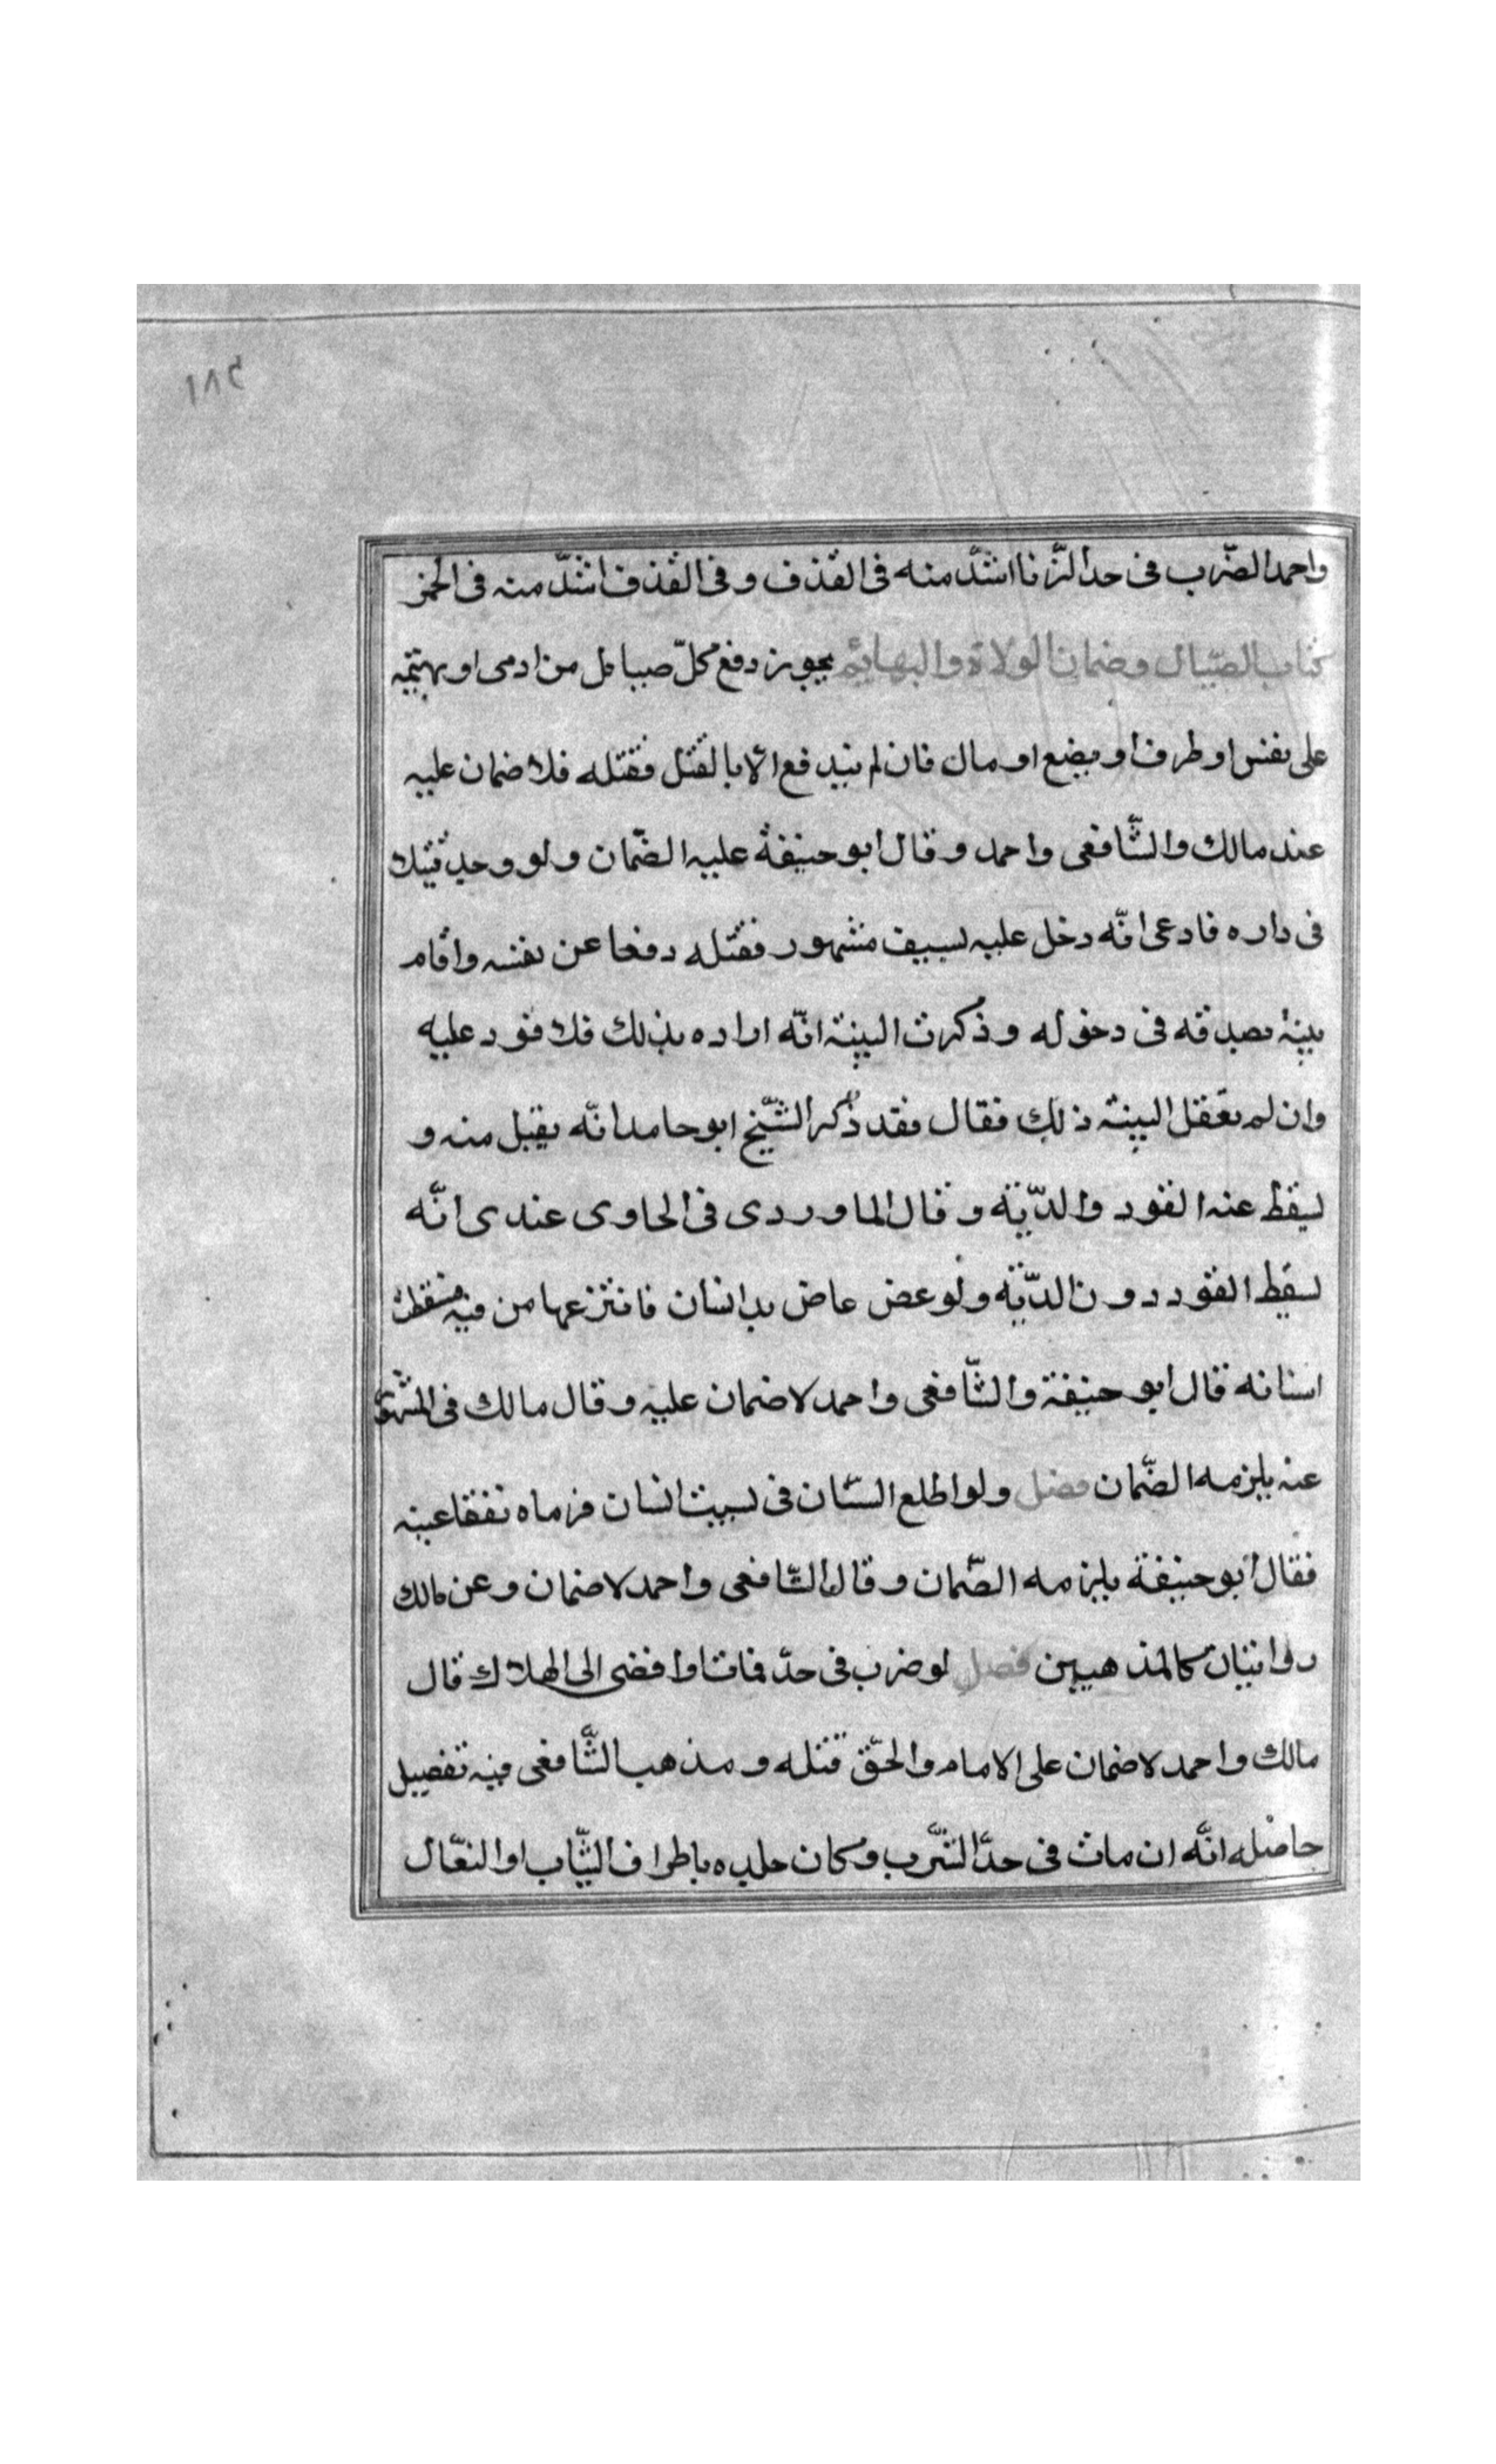 ١٨٥
واحمد الضّرب فى حد الزّنا اشدّ منه فى القذف و فى القذف اشدّ منه فى الخمر
كتاب الصّيال وضمان الولاة والبهائم يجوز دفع كلّ صيايل من ادمى او بهيمة
على نفس او طرف او بضع او مال فان لم يندفع الا بالقتل فقتله فلا ضمان عليه
عند مالك والشّافعى واحمد وقال ابو حنيفة عليه الضّمان ولو وجد قتيلا
فى داره فادعى انّه دخل عليه بسيف مشهور فقتله دفعا عن نفسه واقام
بينة بصدقه فى دخوله وذكرت البينة انّه اراده بذلك فلا قود عليه
وان لم تعقل البينة ذلك فقال فقد ذكر الشّيخ ابو حامد انّه يقبل منه و
يسقط عنه القود والدّية وقال الماوردى فى الحاوى عندى انّه
يسقط القود دون الدّية ولو عض عاض يد انسان فانتزعها من فيه فسقطت
اسنانه قال ابو حنيفة والشّافعى واحمد لا ضمان عليه وقال مالك فى المشهور
عنه يلزمه الضّمان فصل ولو اطلع السّان فى بيت انسان فرماه تفقا عينه
فقال ابو حنيفة يلزمه الضّمان وقال الشّافعى واحمد لا ضمان وعن مالك
روايتان كالمذهبين فصل لو ضرب فى حدّ فمات او افضى الى الهلاك قال
مالك واحمد لا ضمان على الامام والحقّ قتله ومذهب الشّافعى فيه تفصيل
حاصله انّه ان مات فى حدّ الشّرب وكان جلده باطراف الثّياب او النعّال